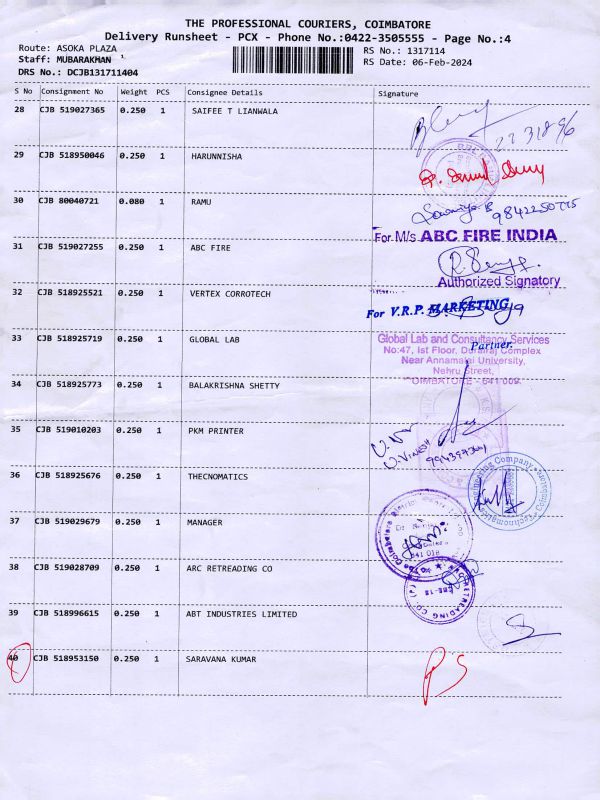 THE PROFESSIONAL COURIERS, COIMBATORE
Delivery Runsheet - PCX - Phone No.:0422-3505555 - Page No.:4
Route: ASOKA PLAZA
RS No.: 1317114
Staff: MUBARAKMAN
RS Date: 06-Feb-2024
DRS No.: DCJB131711404
S No Consignment No Weight PCS Consignee Details Signature
28 CJB 519027365 0.250 1 SAIFEE T LIANWALA
29 CJB 518950046 0.250 1 HARUNNISHA
30 CJB 80040721 0.080 1 RAMU
9842250775
For M/s ABC FIRE INDIA
31 CJB 519027255 0.250 1 ABC FIRE
Authorized Signatory
32 CJB 518925521 0.250 1 VERTEX CORROTECH
For V.R.P. MARKETING
33 CJB 518925719 0.250 1 GLOBAL LAB
Global Lab and Consultancy Services
Partner.
No:47, Ist Floor, Durairaj Complex
Near Annamalai University,
Nehru Street,
COIMBATORE - 641 009.
34 CJB 518925773 0.250 1 BALAKRISHNA SHETTY
35 CJB 519010203 0.250 1 PKM PRINTER
U. VINESH
36 CJB 518925676 0.250 1 THECNOMATICS
37 CJB 519029679 0.250 1 MANAGER
38 CJB 519028709 0.250 1 ARC RETREADING CO
39 CJB 518996615 0.250 1 ABT INDUSTRIES LIMITED
40 CJB 518953150 0.250 1 SARAVANA KUMAR
PS